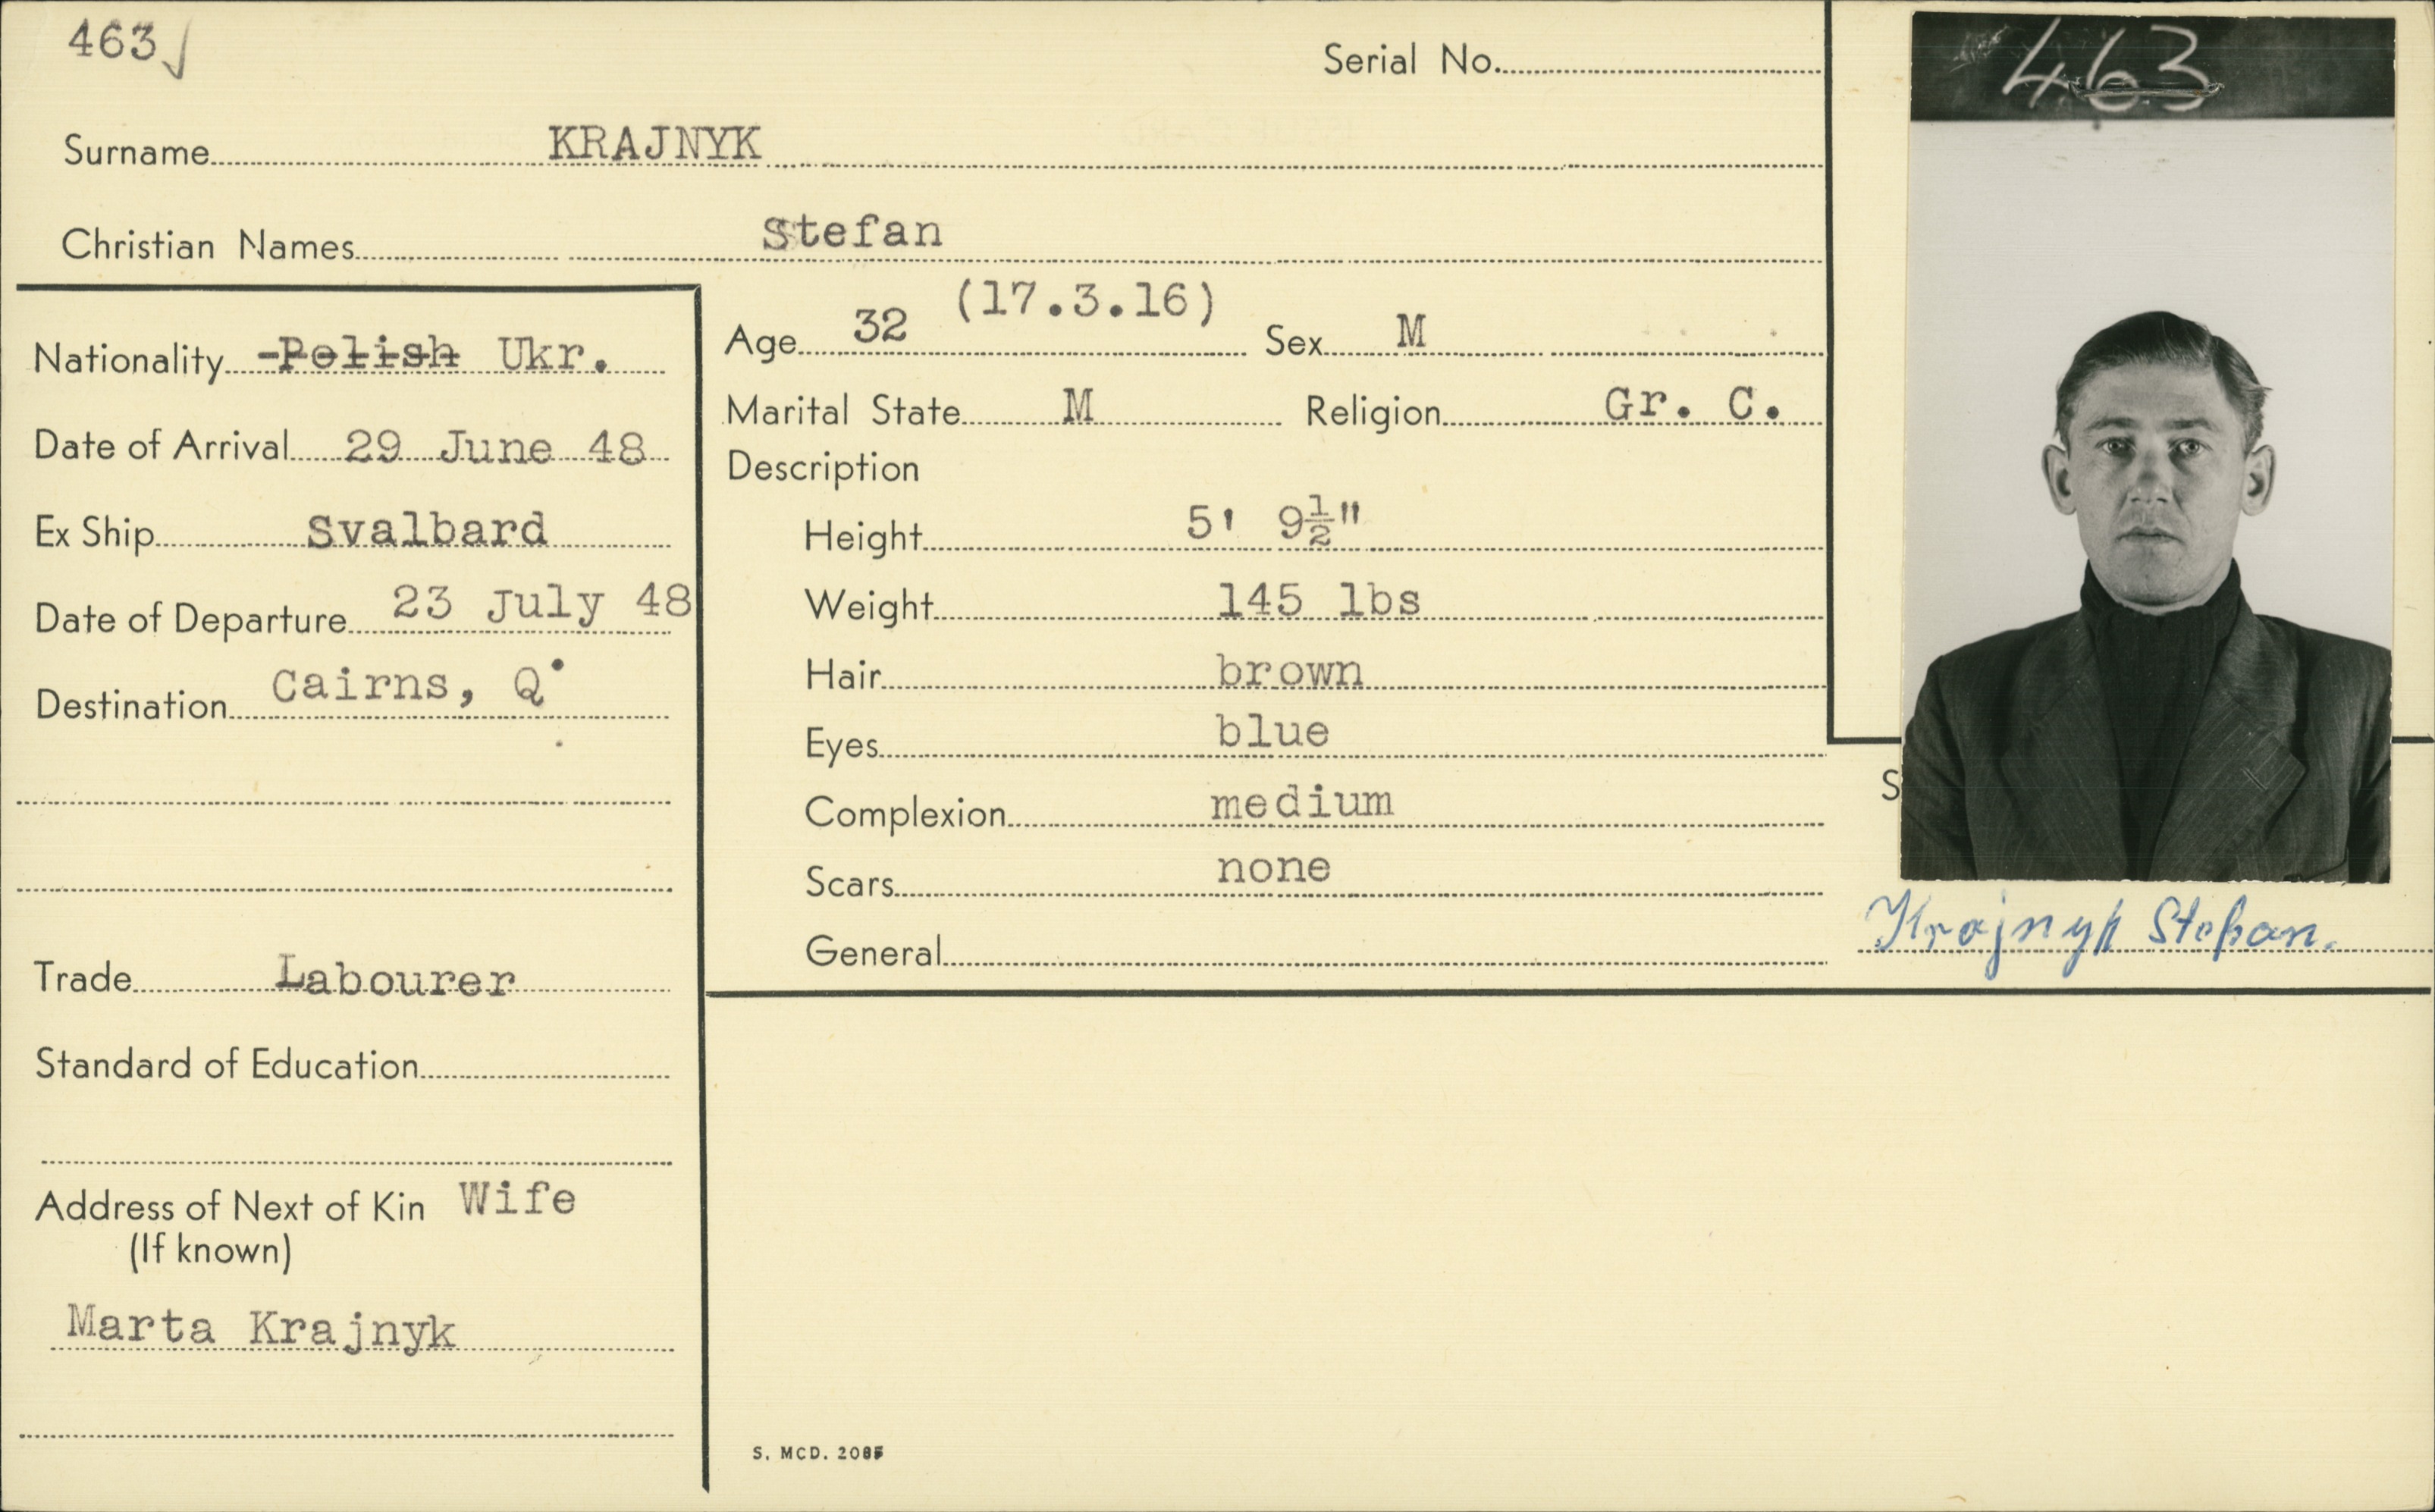 463✓
Serial No.
463
Surname KRAJNYK
Christian Names Stefan
Nationality ~~Polish~~ Ukr.
Date of Arrival 29 June 48
Ex Ship Svalbard
Date of Departure 23 July 48
Destination Cairns, Q.
Trade Labourer
Standard of Education
Address of Next of Kin Wife
(If known)
Marta Krajnyk
Age 32 (17.3.16) Sex M
Marital State M Religion Gr. C.
Description
Height 5' 9½"
Weight 145 lbs
Hair brown
Eyes blue
Complexion medium
Scars none
General
S
Krajnyk Stefan.
S. MCD. 2085